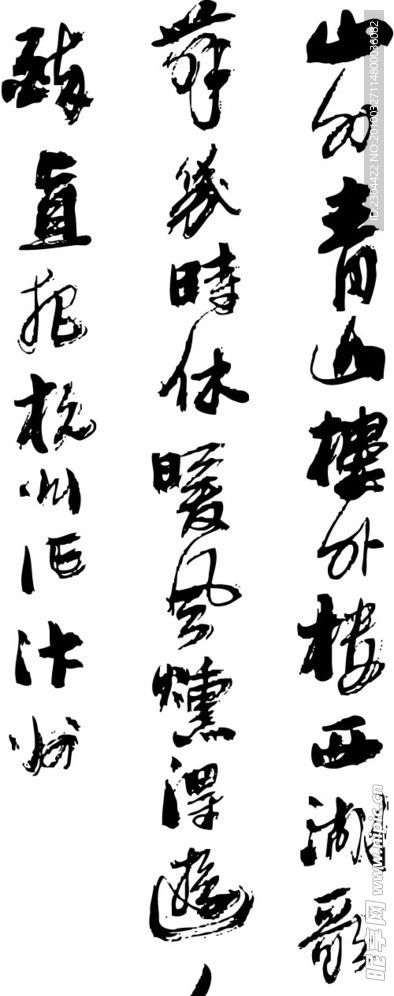 山外青山樓外楼西湖歌
舞幾時休暖風燻得遊
醉直把杭州作汴州
ID:2304422 NO:20100327114800036082
昵享网 www.nipic.cn